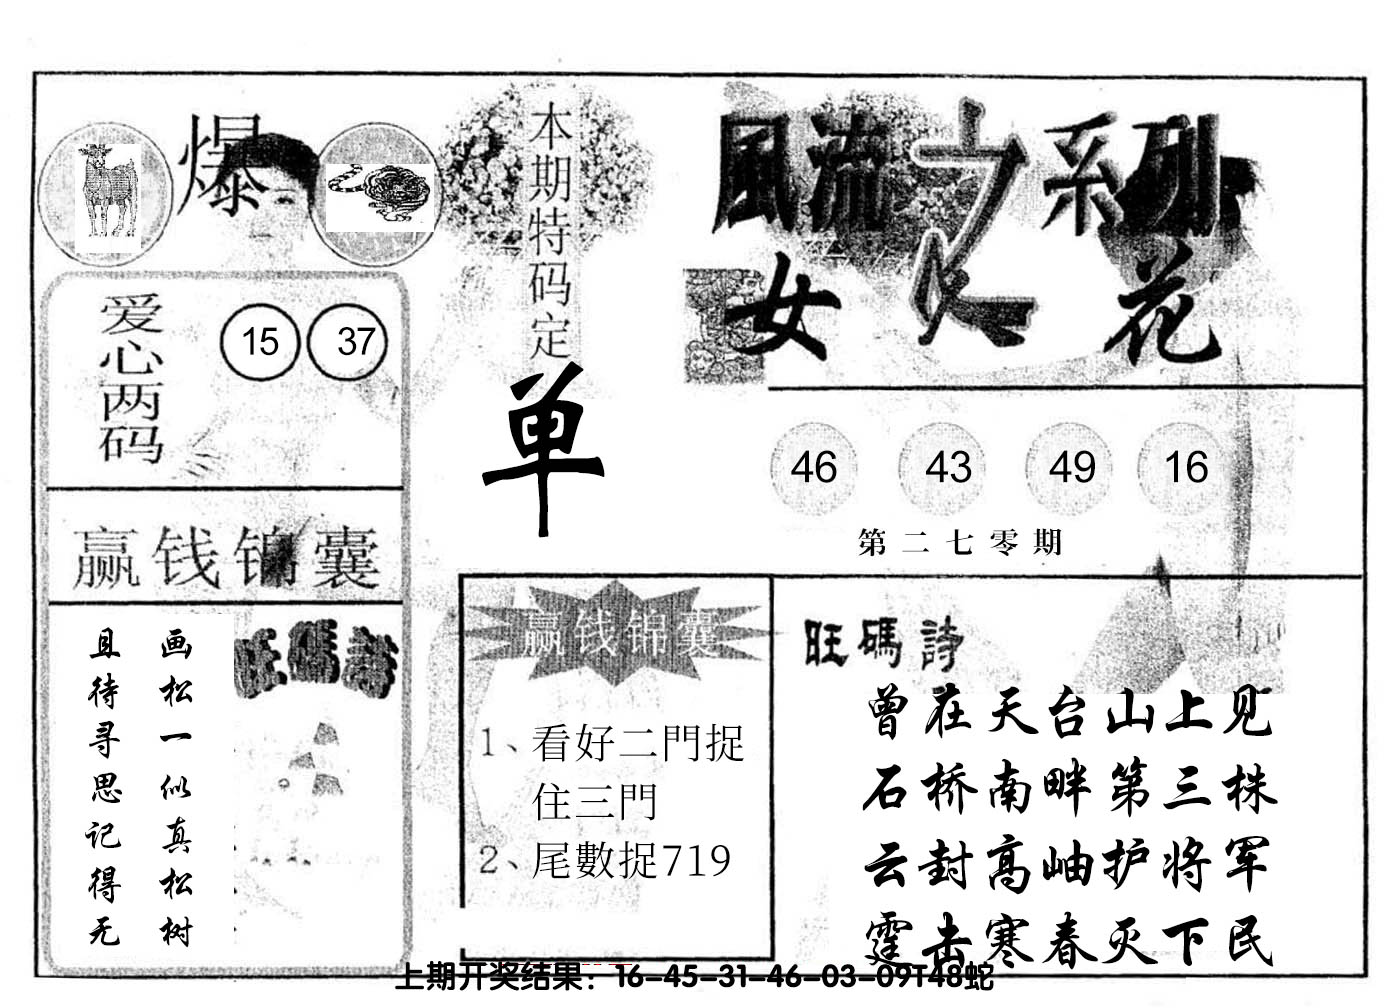 爆
爱心两码
15 37
赢钱锦囊
画松一似真松树
且待寻思记得无
旺碼詩
本期特码定
单
風流之系列
女人花
46 43 49 16
第二七零期
赢钱锦囊
1、看好二門捉
住三門
2、尾數捉719
旺碼詩
曾在天台山上见
石桥南畔第三株
云封高岫护将军
霆击寒春灭下民
上期开奖结果：16-45-31-46-03-09T48蛇